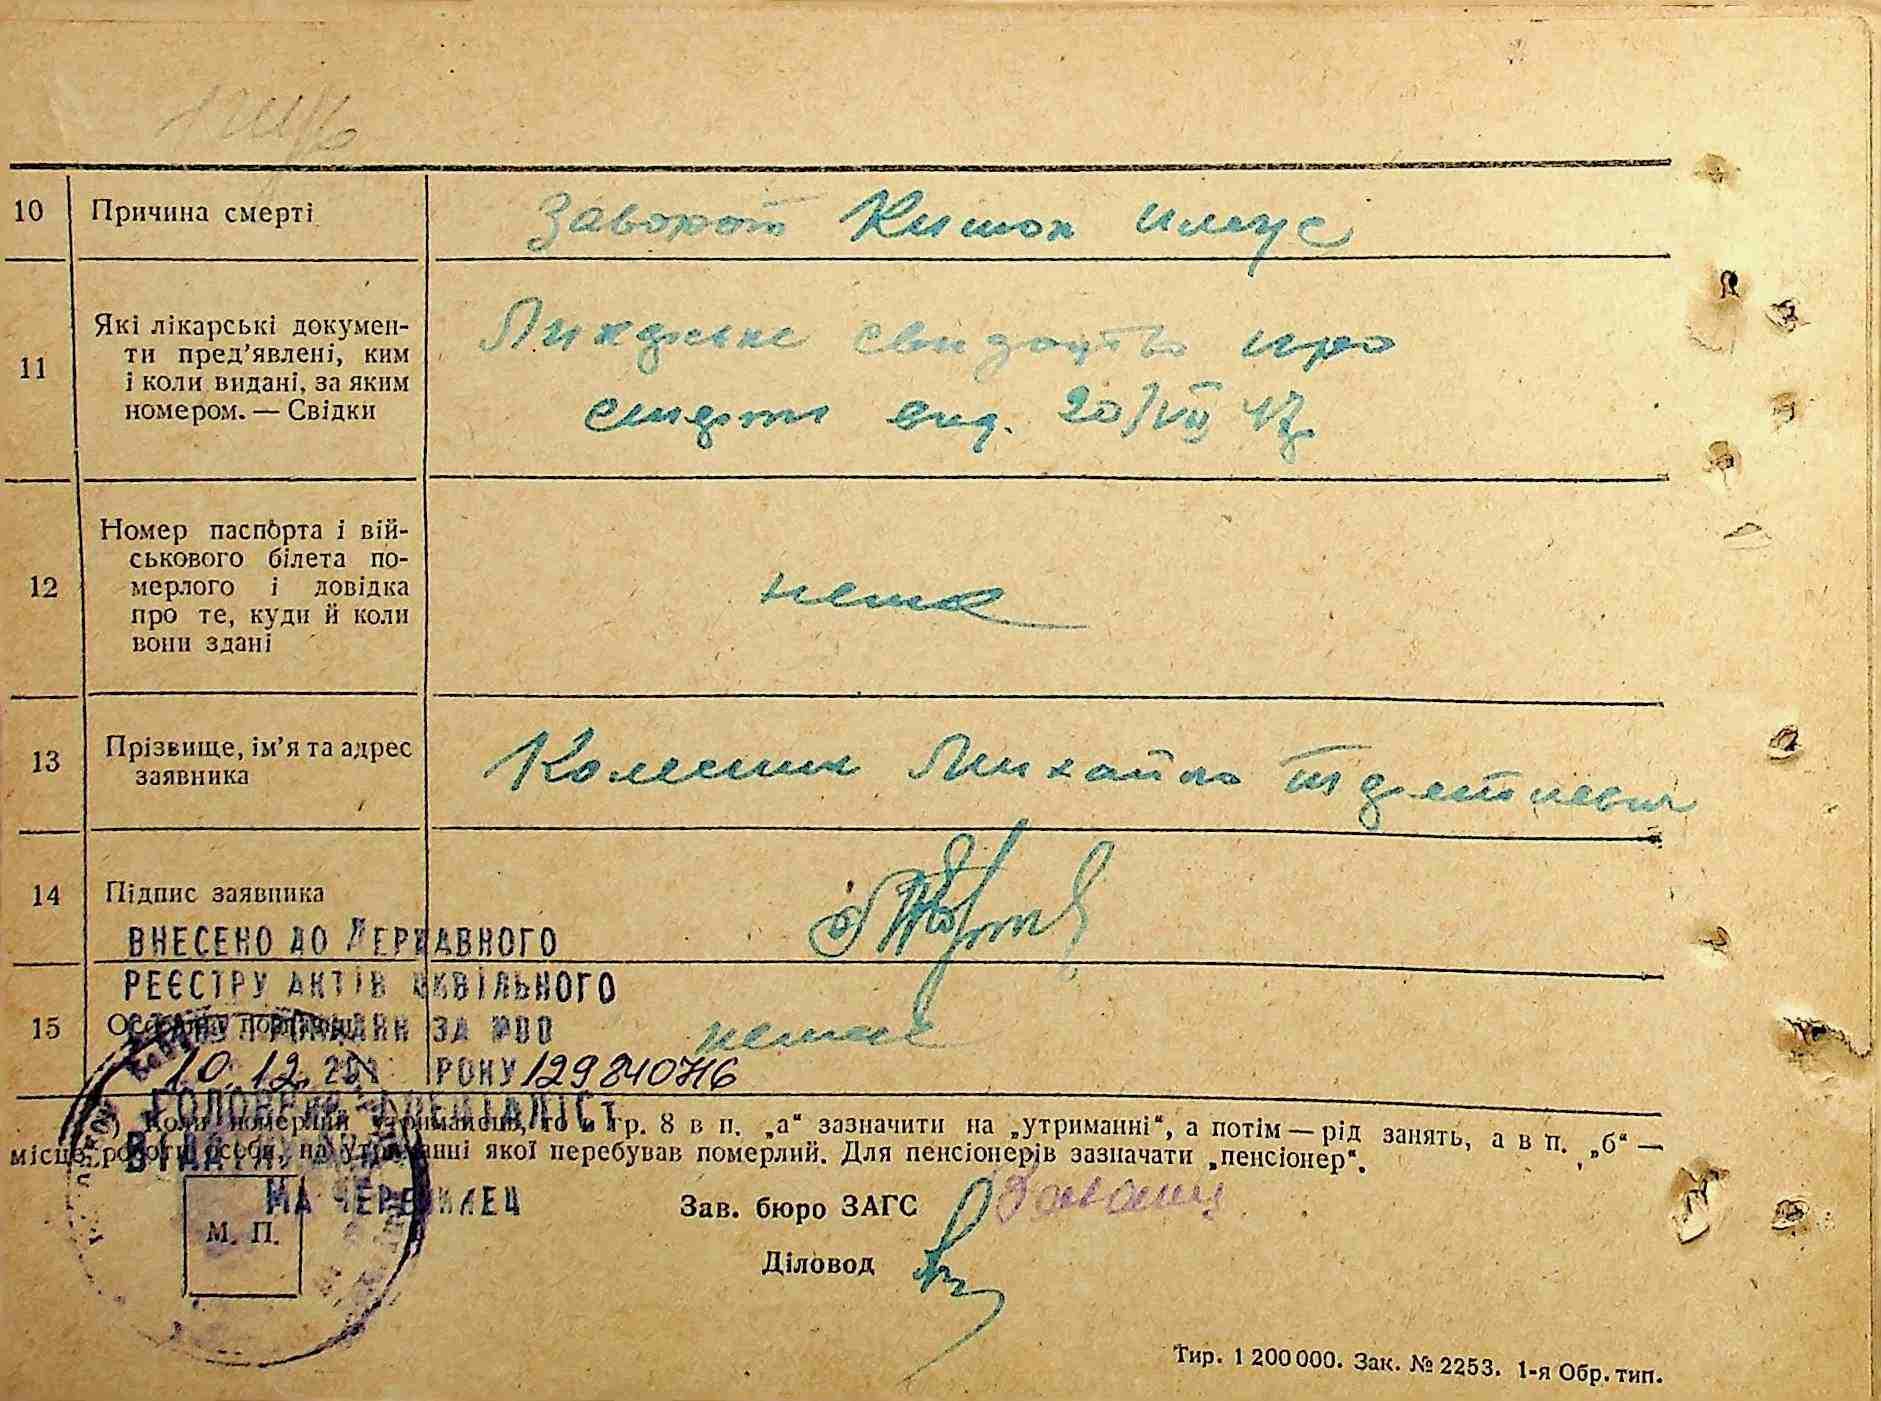 10 Причина смерті Заворот Кишок илеус
11 Які лікарські докумен-
ти пред'явлені, ким
і коли видані, за яким
номером. — Свідки
Ликарske свидоцтво про
смерти вид. 20/VII 47
12 Номер паспорта і вій-
ськового білета по-
мерлого і довідка
про те, куди й коли
вони здані
нема
13 Прізвище, ім'я та адрес
заявника
Колесник Михайло
14 Підпис заявника
ВНЕСЕНО ДО ДЕРЖАВНОГО
РЕЄСТРУ АКТІВ ЦИВІЛЬНОГО
15 нема
10.12. РОКУ 12984076
ГОЛОВНИЙ СПЕЦІАЛІСТ
*) Коли померлий утриманець, то в гр. 8 в п. „а“ зазначити на „утриманні“, а потім — рід занять, а в п. „б“ —
місце роботи особи, на утриманні якої перебував померлий. Для пенсіонерів зазначати „пенсіонер“.
М. П.
Зав. бюро ЗАГС
Діловод
Тир. 1 200 000. Зак. № 2253. 1-я Обр. тип.